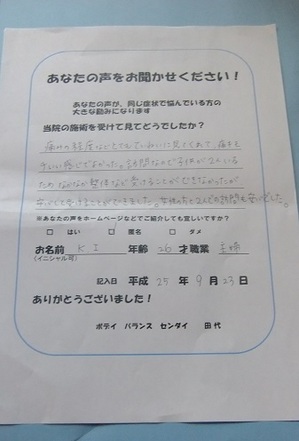 あなたの声をお聞かせください！
あなたの声が、同じ症状で悩んでいる方の
大きな励みになります
当院の施術を受けて見てどうでしたか？
痛みの程度などとてもていねいに見てくれて、痛さも
感じでよかった。訪問なので子供が2人いる
ためなかなか整体など受けることができなかったが
安心して受けることができました。
※あなたの声をホームページなどでご紹介しても宜しいですか？
□ はい □ 匿名 □ ダメ
お名前 K I 年齢 26 才職業 主婦
(イニシャル可)
記入日 平成 25 年 9 月 23 日
ありがとうございました！
ボディ バランス センダイ 田代